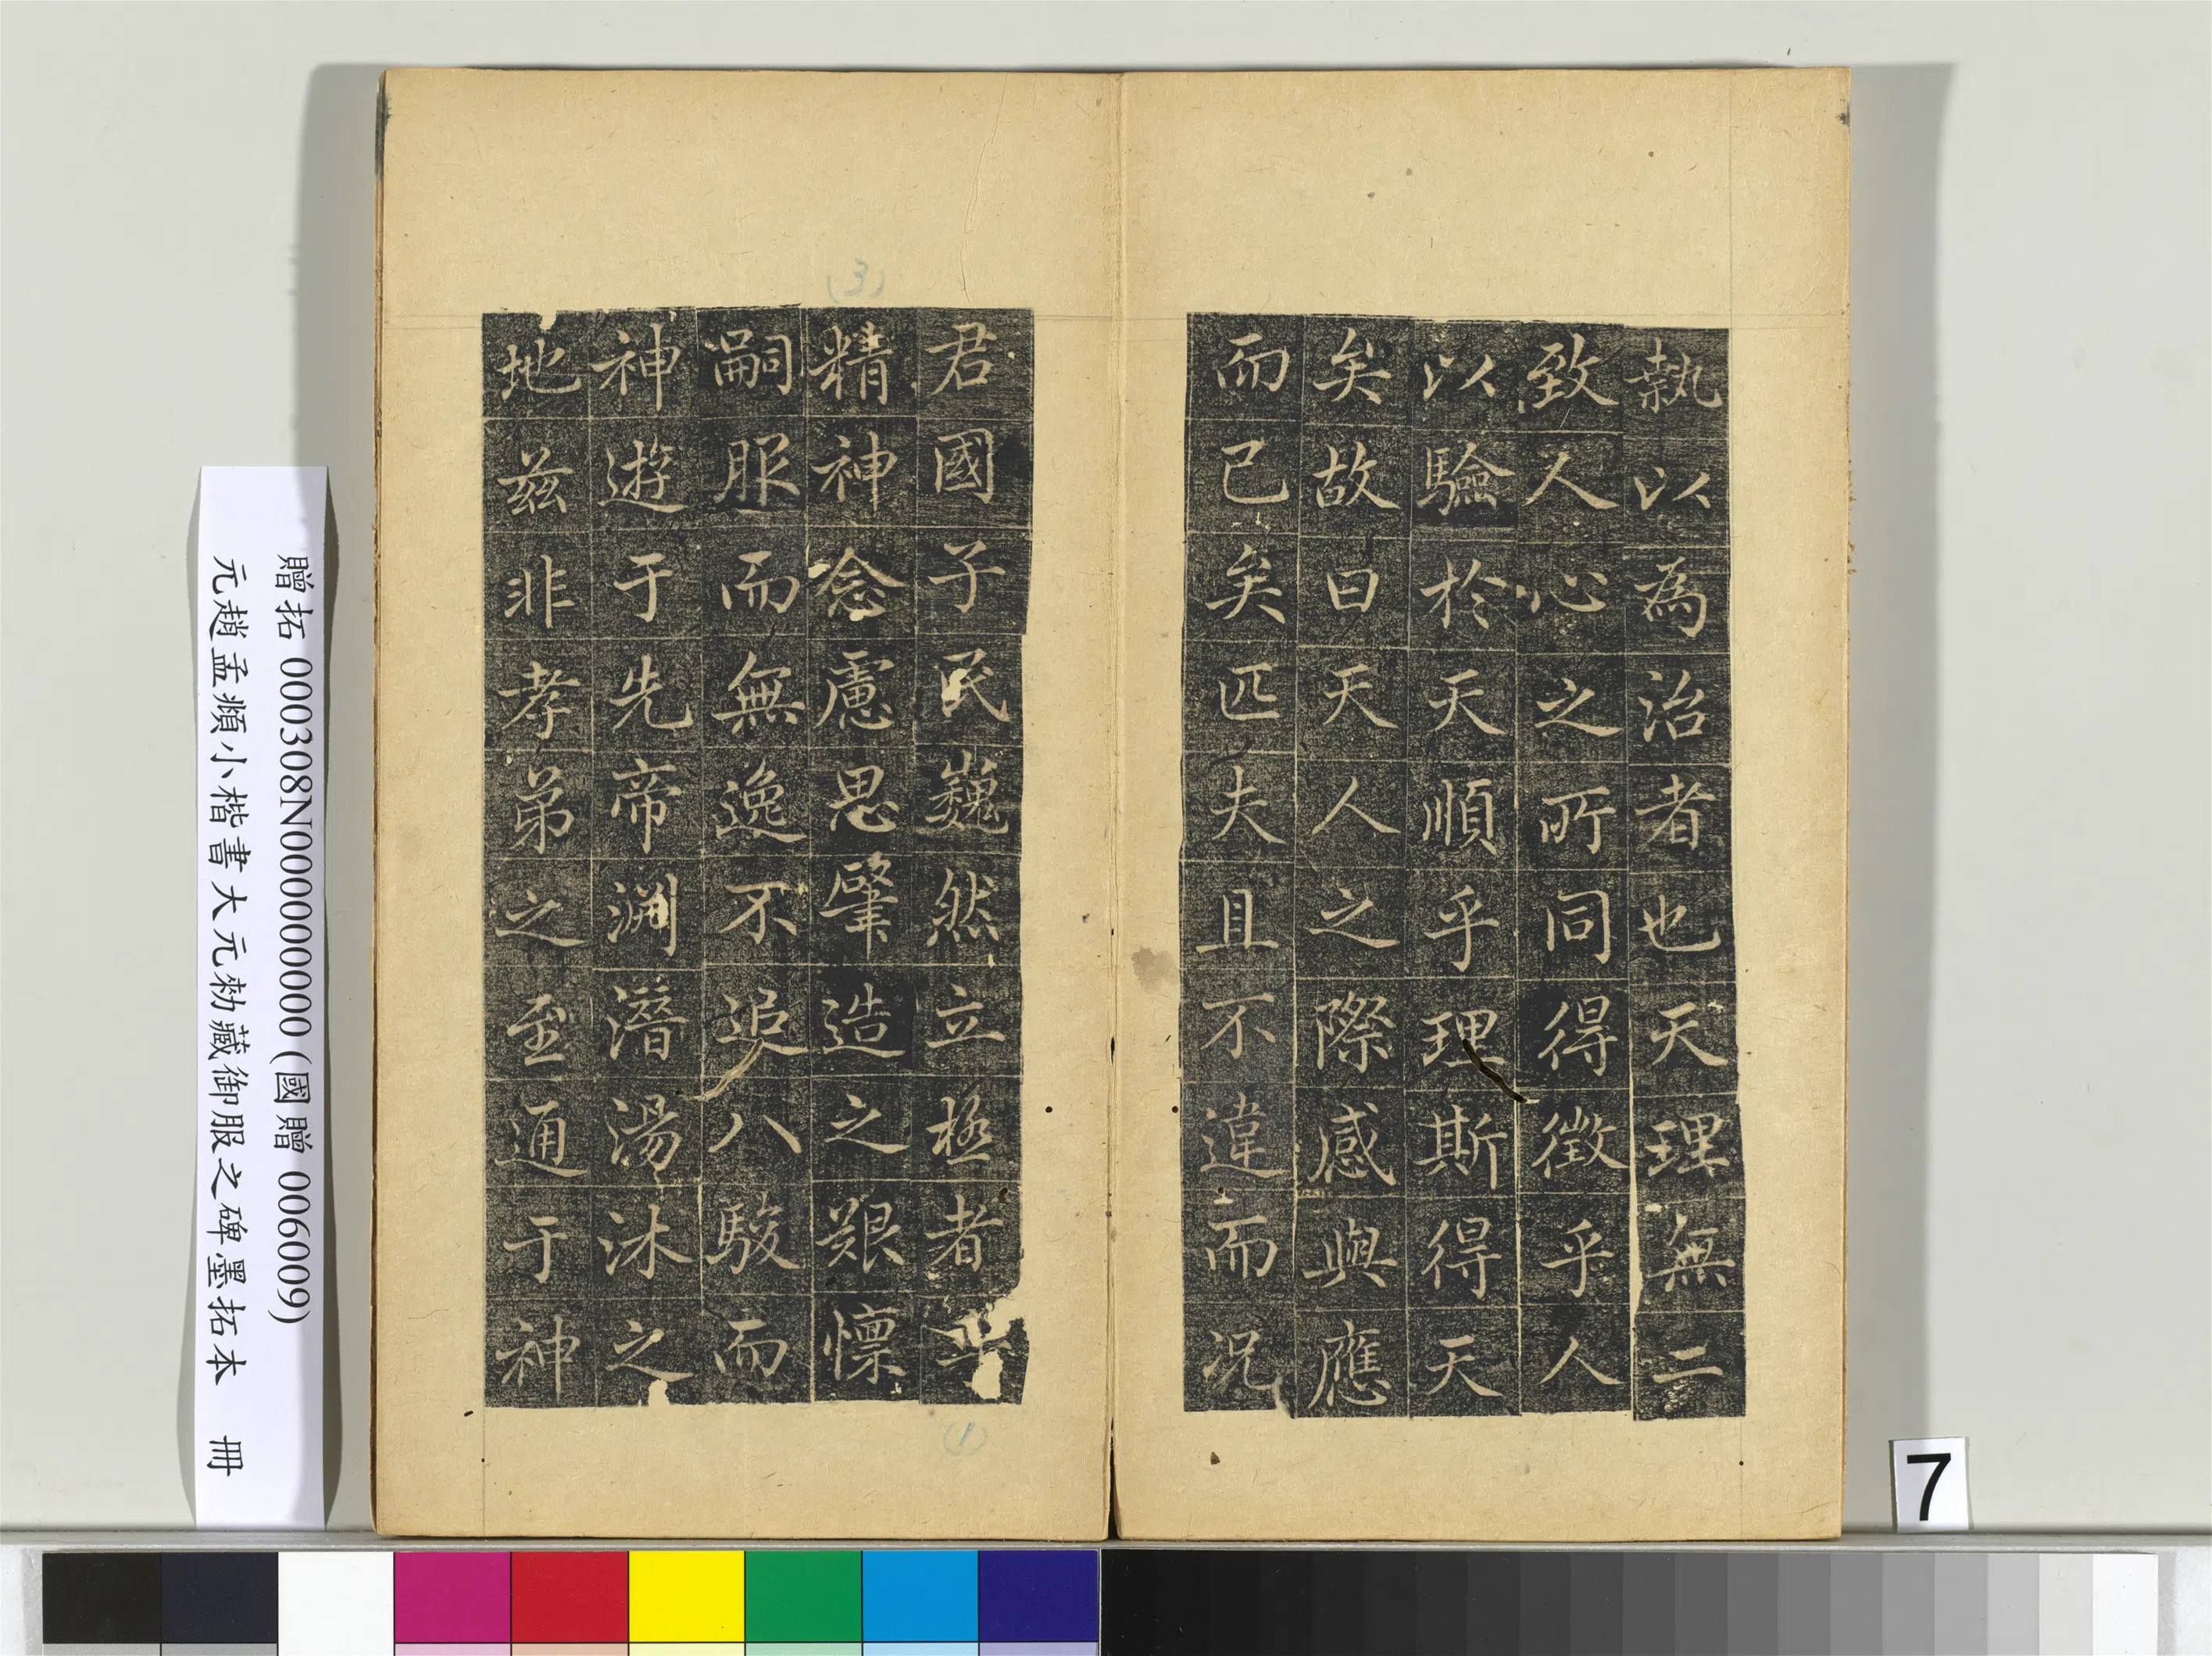 執以為治者也天理無二
致人心之所同得徵乎人
以驗於天順乎理斯得天
矣故曰天人之際感與應
而已矣匹夫且不違而況
君國子民巍然立極者乎
精神念慮思肈造之艱懍
嗣服而無逸不追八駿而
神遊于先帝淵潛湯沐之
地茲非孝弟之至通于神
(3)
(1)
贈拓 000308N000000000 (國贈 006009)
元趙孟頫小楷書大元勑藏御服之碑墨拓本 冊
7